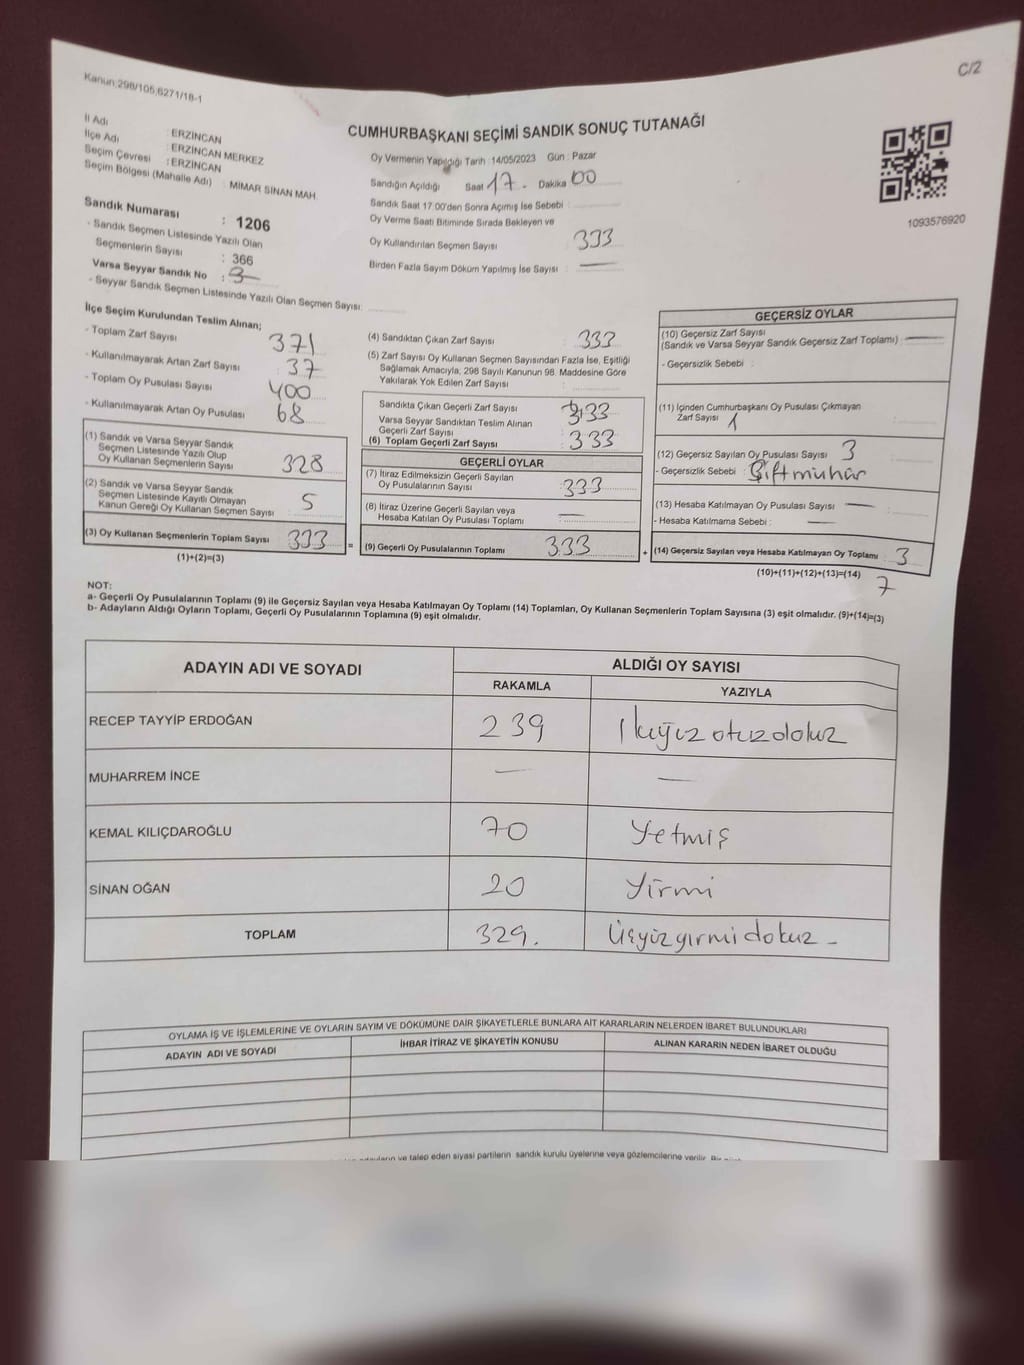 Kanun:298/105,6271/18-1
C/2
CUMHURBAŞKANI SEÇİMİ SANDIK SONUÇ TUTANAĞI
İl Adı : ERZİNCAN
İlçe Adı : ERZİNCAN MERKEZ
Seçim Çevresi : ERZİNCAN
Seçim Bölgesi (Mahalle Adı) : MİMAR SİNAN MAH.
Sandık Numarası : 1206
- Sandık Seçmen Listesinde Yazılı Olan
Seçmenlerin Sayısı : 366
Varsa Seyyar Sandık No : 3
- Seyyar Sandık Seçmen Listesinde Yazılı Olan Seçmen Sayısı:
Oy Vermenin Yapıldığı Tarih :14/05/2023 Gün : Pazar
Sandığın Açıldığı Saat 17 - Dakika 00
Sandık Saat 17:00'den Sonra Açımış İse Sebebi :
Oy Verme Saati Bitiminde Sırada Bekleyen ve
Oy Kullandırılan Seçmen Sayısı : 333
Birden Fazla Sayım Döküm Yapılmış İse Sayısı : —
1093576920
İlçe Seçim Kurulundan Teslim Alınan;
- Toplam Zarf Sayısı : 371
- Kullanılmayarak Artan Zarf Sayısı : 37
- Toplam Oy Pusulası Sayısı : 400
- Kullanılmayarak Artan Oy Pusulası : 68
(1) Sandık ve Varsa Seyyar Sandık
Seçmen Listesinde Yazılı Olup
Oy Kullanan Seçmenlerin Sayısı : 328
(2) Sandık ve Varsa Seyyar Sandık
Seçmen Listesinde Kayıtlı Olmayan
Kanun Gereği Oy Kullanan Seçmen Sayısı : 5
(3) Oy Kullanan Seçmenlerin Toplam Sayısı : 333
(1)+(2)=(3)
=
(4) Sandıktan Çıkan Zarf Sayısı : 333
(5) Zarf Sayısı Oy Kullanan Seçmen Sayısından Fazla İse, Eşitliği
Sağlamak Amacıyla, 298 Sayılı Kanunun 98. Maddesine Göre
Yakılarak Yok Edilen Zarf Sayısı :
Sandıkta Çıkan Geçerli Zarf Sayısı : 333
Varsa Seyyar Sandıktan Teslim Alınan
Geçerli Zarf Sayısı :
(6) Toplam Geçerli Zarf Sayısı : 333
GEÇERLİ OYLAR
(7) İtiraz Edilmeksizin Geçerli Sayılan
Oy Pusulalarının Sayısı : 333
(8) İtiraz Üzerine Geçerli Sayılan veya
Hesaba Katılan Oy Pusulası Toplamı : —
(9) Geçerli Oy Pusulalarının Toplamı 333
+
GEÇERSİZ OYLAR
(10) Geçersiz Zarf Sayısı
(Sandık ve Varsa Seyyar Sandık Geçersiz Zarf Toplamı) : —
- Geçersizlik Sebebi :
(11) İçinden Cumhurbaşkanı Oy Pusulası Çıkmayan
Zarf Sayısı 1 :
(12) Geçersiz Sayılan Oy Pusulası Sayısı : 3
- Geçersizlik Sebebi : Çift mühür
(13) Hesaba Katılmayan Oy Pusulası Sayısı : —
- Hesaba Katılmama Sebebi : —
(14) Geçersiz Sayılan veya Hesaba Katılmayan Oy Toplamı : 3
(10)+(11)+(12)+(13)=(14)
7
NOT:
a- Geçerli Oy Pusulalarının Toplamı (9) ile Geçersiz Sayılan veya Hesaba Katılmayan Oy Toplamı (14) Toplamları, Oy Kullanan Seçmenlerin Toplam Sayısına (3) eşit olmalıdır. (9)+(14)=(3)
b- Adayların Aldığı Oyların Toplamı, Geçerli Oy Pusulalarının Toplamına (9) eşit olmalıdır.
ADAYIN ADI VE SOYADI
ALDIĞI OY SAYISI
RAKAMLA YAZIYLA
RECEP TAYYİP ERDOĞAN 239 İkiyüz otuz dokuz
MUHARREM İNCE — —
KEMAL KILIÇDAROĞLU 70 Yetmiş
SİNAN OĞAN 20 Yirmi
TOPLAM 329. Üçyüz yirmi dokuz -
OYLAMA İŞ VE İŞLEMLERİNE VE OYLARIN SAYIM VE DÖKÜMÜNE DAİR ŞİKAYETLERLE BUNLARA AİT KARARLARIN NELERDEN İBARET BULUNDUKLARI
ADAYIN ADI VE SOYADI İHBAR İTİRAZ VE ŞİKAYETİN KONUSU ALINAN KARARIN NEDEN İBARET OLDUĞU
ve talep eden siyasi partilerin sandık kurulu üyelerine veya gözlemcilerine verilir.